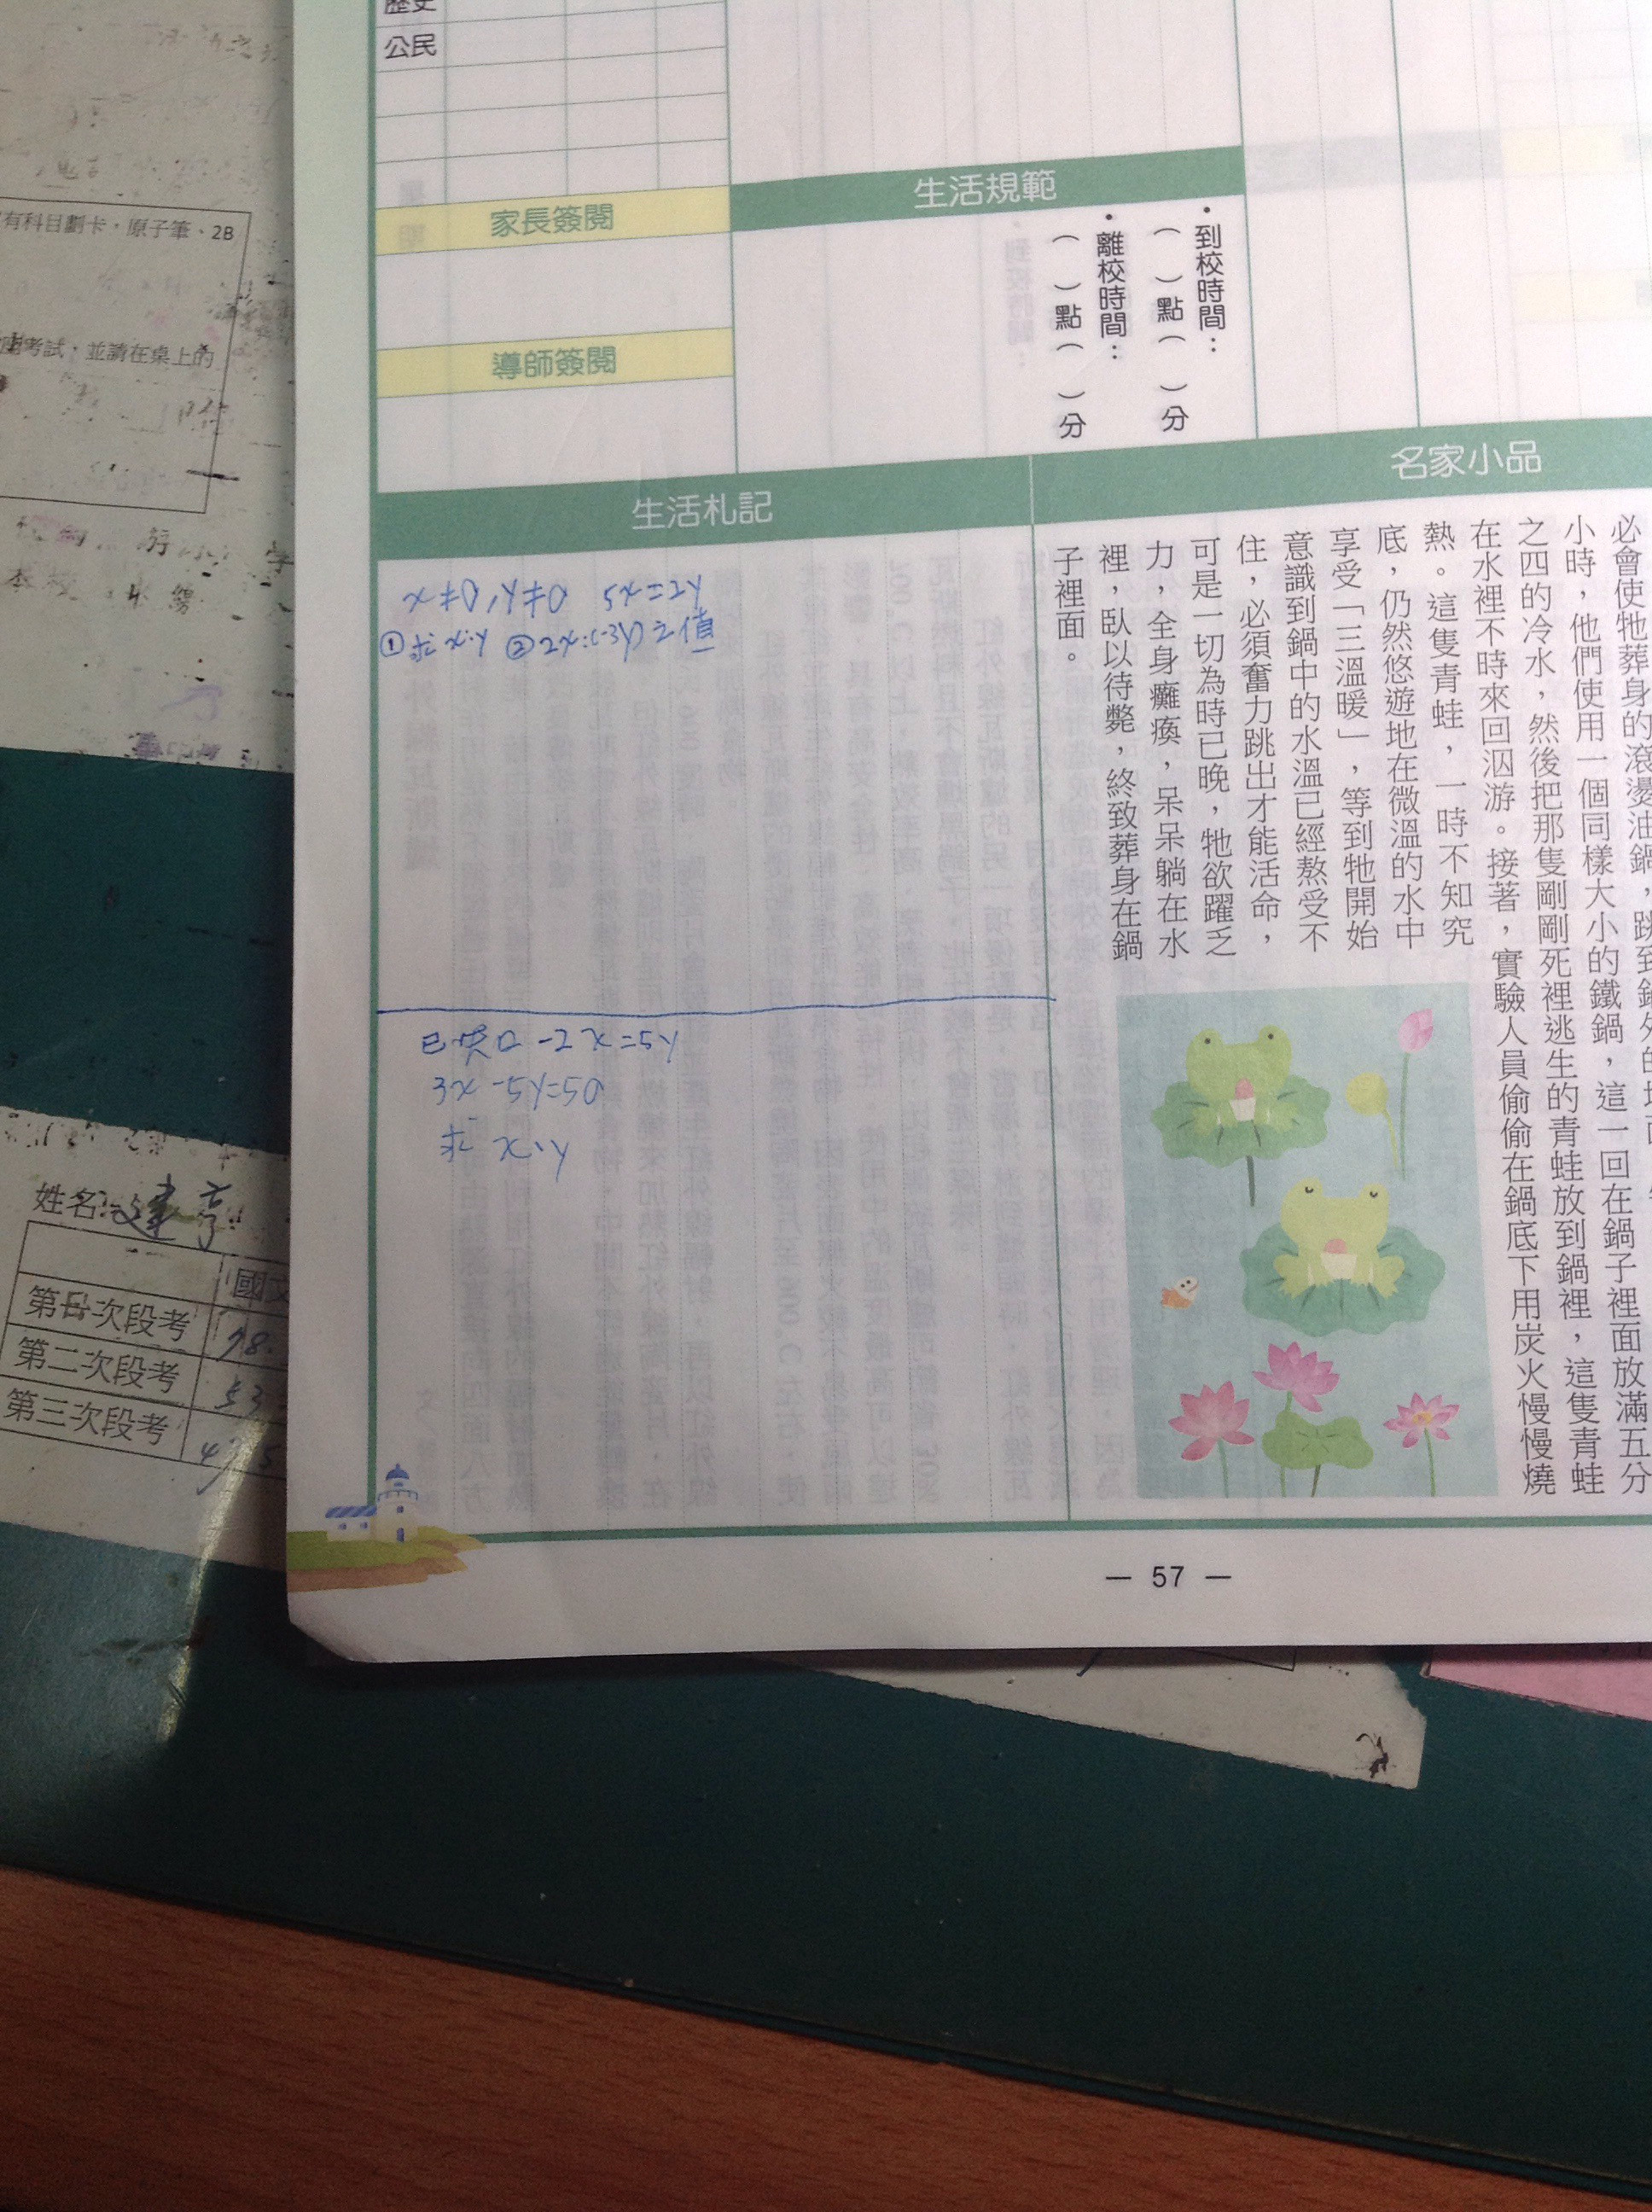 公民
家長簽閱
導師簽閱
生活規範
・到校時間：
（ ）點（ ）分
・離校時間：
（ ）點（ ）分
名家小品
小時，他們使用一個同樣大小的鐵鍋，這一回在鍋子裡面放滿五分
之四的冷水，然後把那隻剛剛死裡逃生的青蛙放到鍋裡，這隻青蛙
在水裡不時來回泅游。接著，實驗人員偷偷在鍋底下用炭火慢慢燒
熱。這隻青蛙，一時不知究
底，仍然悠遊地在微溫的水中
享受「三溫暖」，等到牠開始
意識到鍋中的水溫已經熬受不
住，必須奮力跳出才能活命，
可是一切為時已晚，牠欲躍乏
力，全身癱瘓，呆呆躺在水
裡，臥以待斃，終致葬身在鍋
子裡面。
生活札記
x≠0,y≠0 5x=2y
①求x:y ②2x:(-3y)之值
已知 -2x=5y
3x-5y=50
求x、y
— 57 —
有科目劃卡，原子筆、2B
考試，並請在桌上的
姓名:建亨
國文
第一次段考 78
第二次段考 53
第三次段考